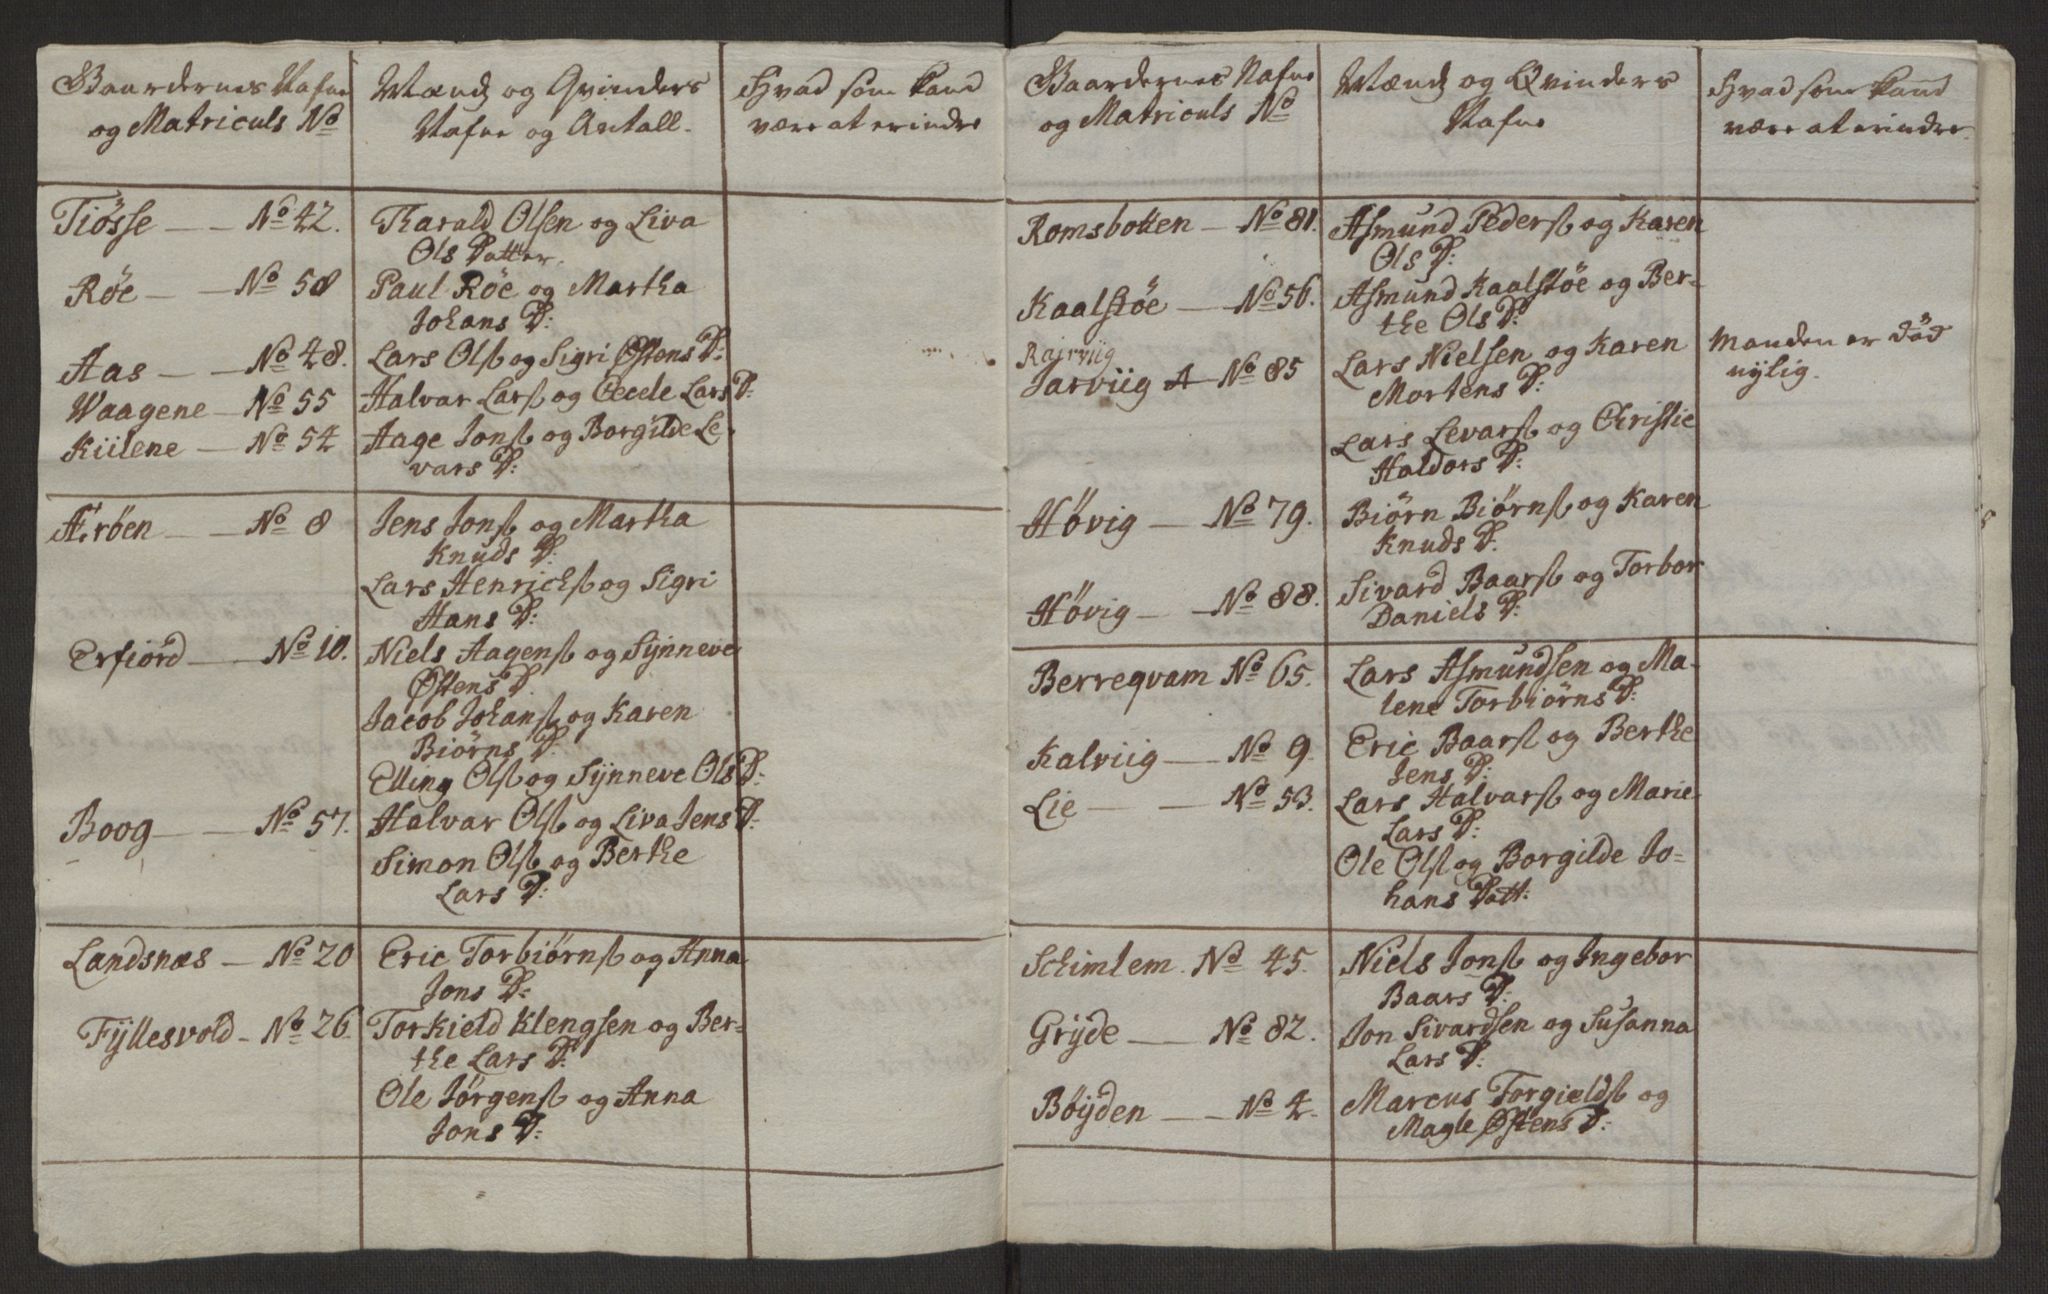 Gaardernes Nafne
og Matriculs No
Mænds og Qvinders
Nafne og Antall.
Hvad som kand
være at erindre
Tiösse — — No 42. Harald Olsen og Liva
Ols Datter.
Röe — — No 58 Paul Röe og Martha
Johans D:
Aas — — No 48. Lars Olss og Sigri Østens D:
Waagene — No 55 Halvar Larss og Cecele Lars D:
Kiilene — No 54 Aage Jonss og Borgilde Le-
vars D:
Æröen — — No 8 Jens Jonss og Martha
Knuds D:
Lars Henrichss og Sigri
Hans D:
Erfiord — No 10. Niels Aagenss og Sÿnneve
Østens D.
Jacob Johanss og Karen
Biörns D:
Elling Olss og Sÿnneve Ols D:
Boog — — No 57. Halvar Olss og Liva Jens D:
Simon Olss og Berthe
Lars D:
Landsnæs — No 20 Eric Torbiörnss og Anna
Jons D:
Fÿllesvold - No 26 Torkield Klengsen og Ber-
the Lars D:
Ole Jörgenss og Anna
Jons D:
Gaardernes Nafne
og Matriculs No
Mænds og Qvinders
Nafne
Hvad som kand
være at erindre
Romsbotten — No 81. Asmund Pederss og Karen
Ols D:
Kaalstöe — No 56. Asmund Kaalstöe og Ber-
the Ols D:
Rajrviig
Jarviig A No 85 Lars Nielsen og Karen
Mortens D:
Manden er död
nÿlig.
Lars Levarss og Christie
Haldors D:
Hövig — No 79. Biörn Biörnss og Karen
Knuds D:
Hövig — No 88. Sivard Baarss og Torbor
Daniels D:
Berreqvam No 65. Lars Asmundsen og Ma-
lene Torbiörns D:
Kalviig — No 9. Eric Baarss og Berthe
Jens D:
Lie — — No 53. Lars Halvarss og Marie
Lars D:
Ole Olss og Borgilde Jo=
hans Datt:
Schimlem No 45. Niels Jonss og Ingebor
Baars D:
Grÿde — No 82. Jon Sivardsen og Susanna
Lars D:
Böÿden — No 4. Marcus Torgieldss og
Magle Østens D: